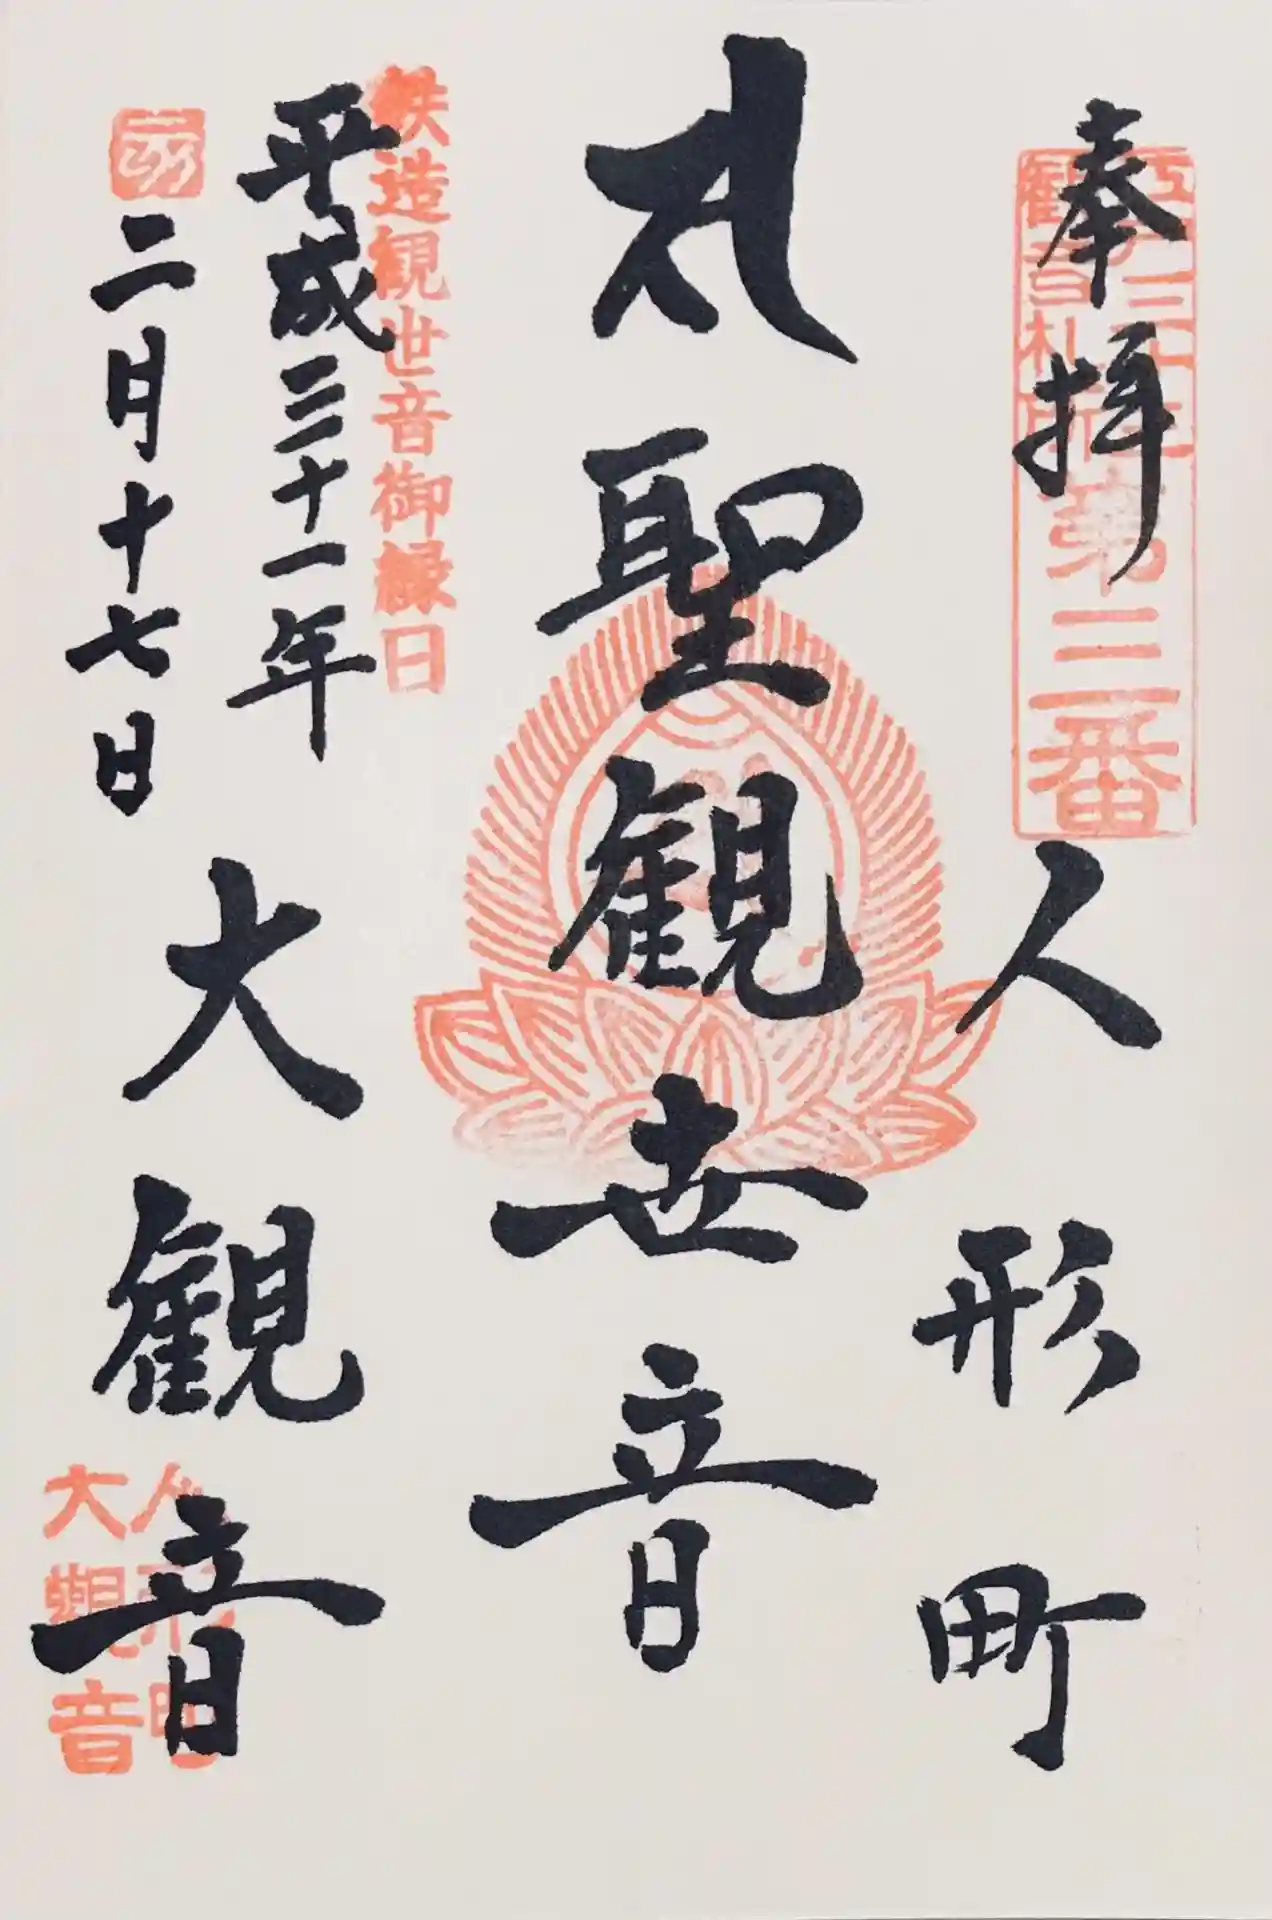 奉拝
江戸三十三
観音札所
第三番
人形町
𑖭聖観世音
鉄造観世音御縁日
平成三十一年
二月十七日
大観音
人形町
大觀音